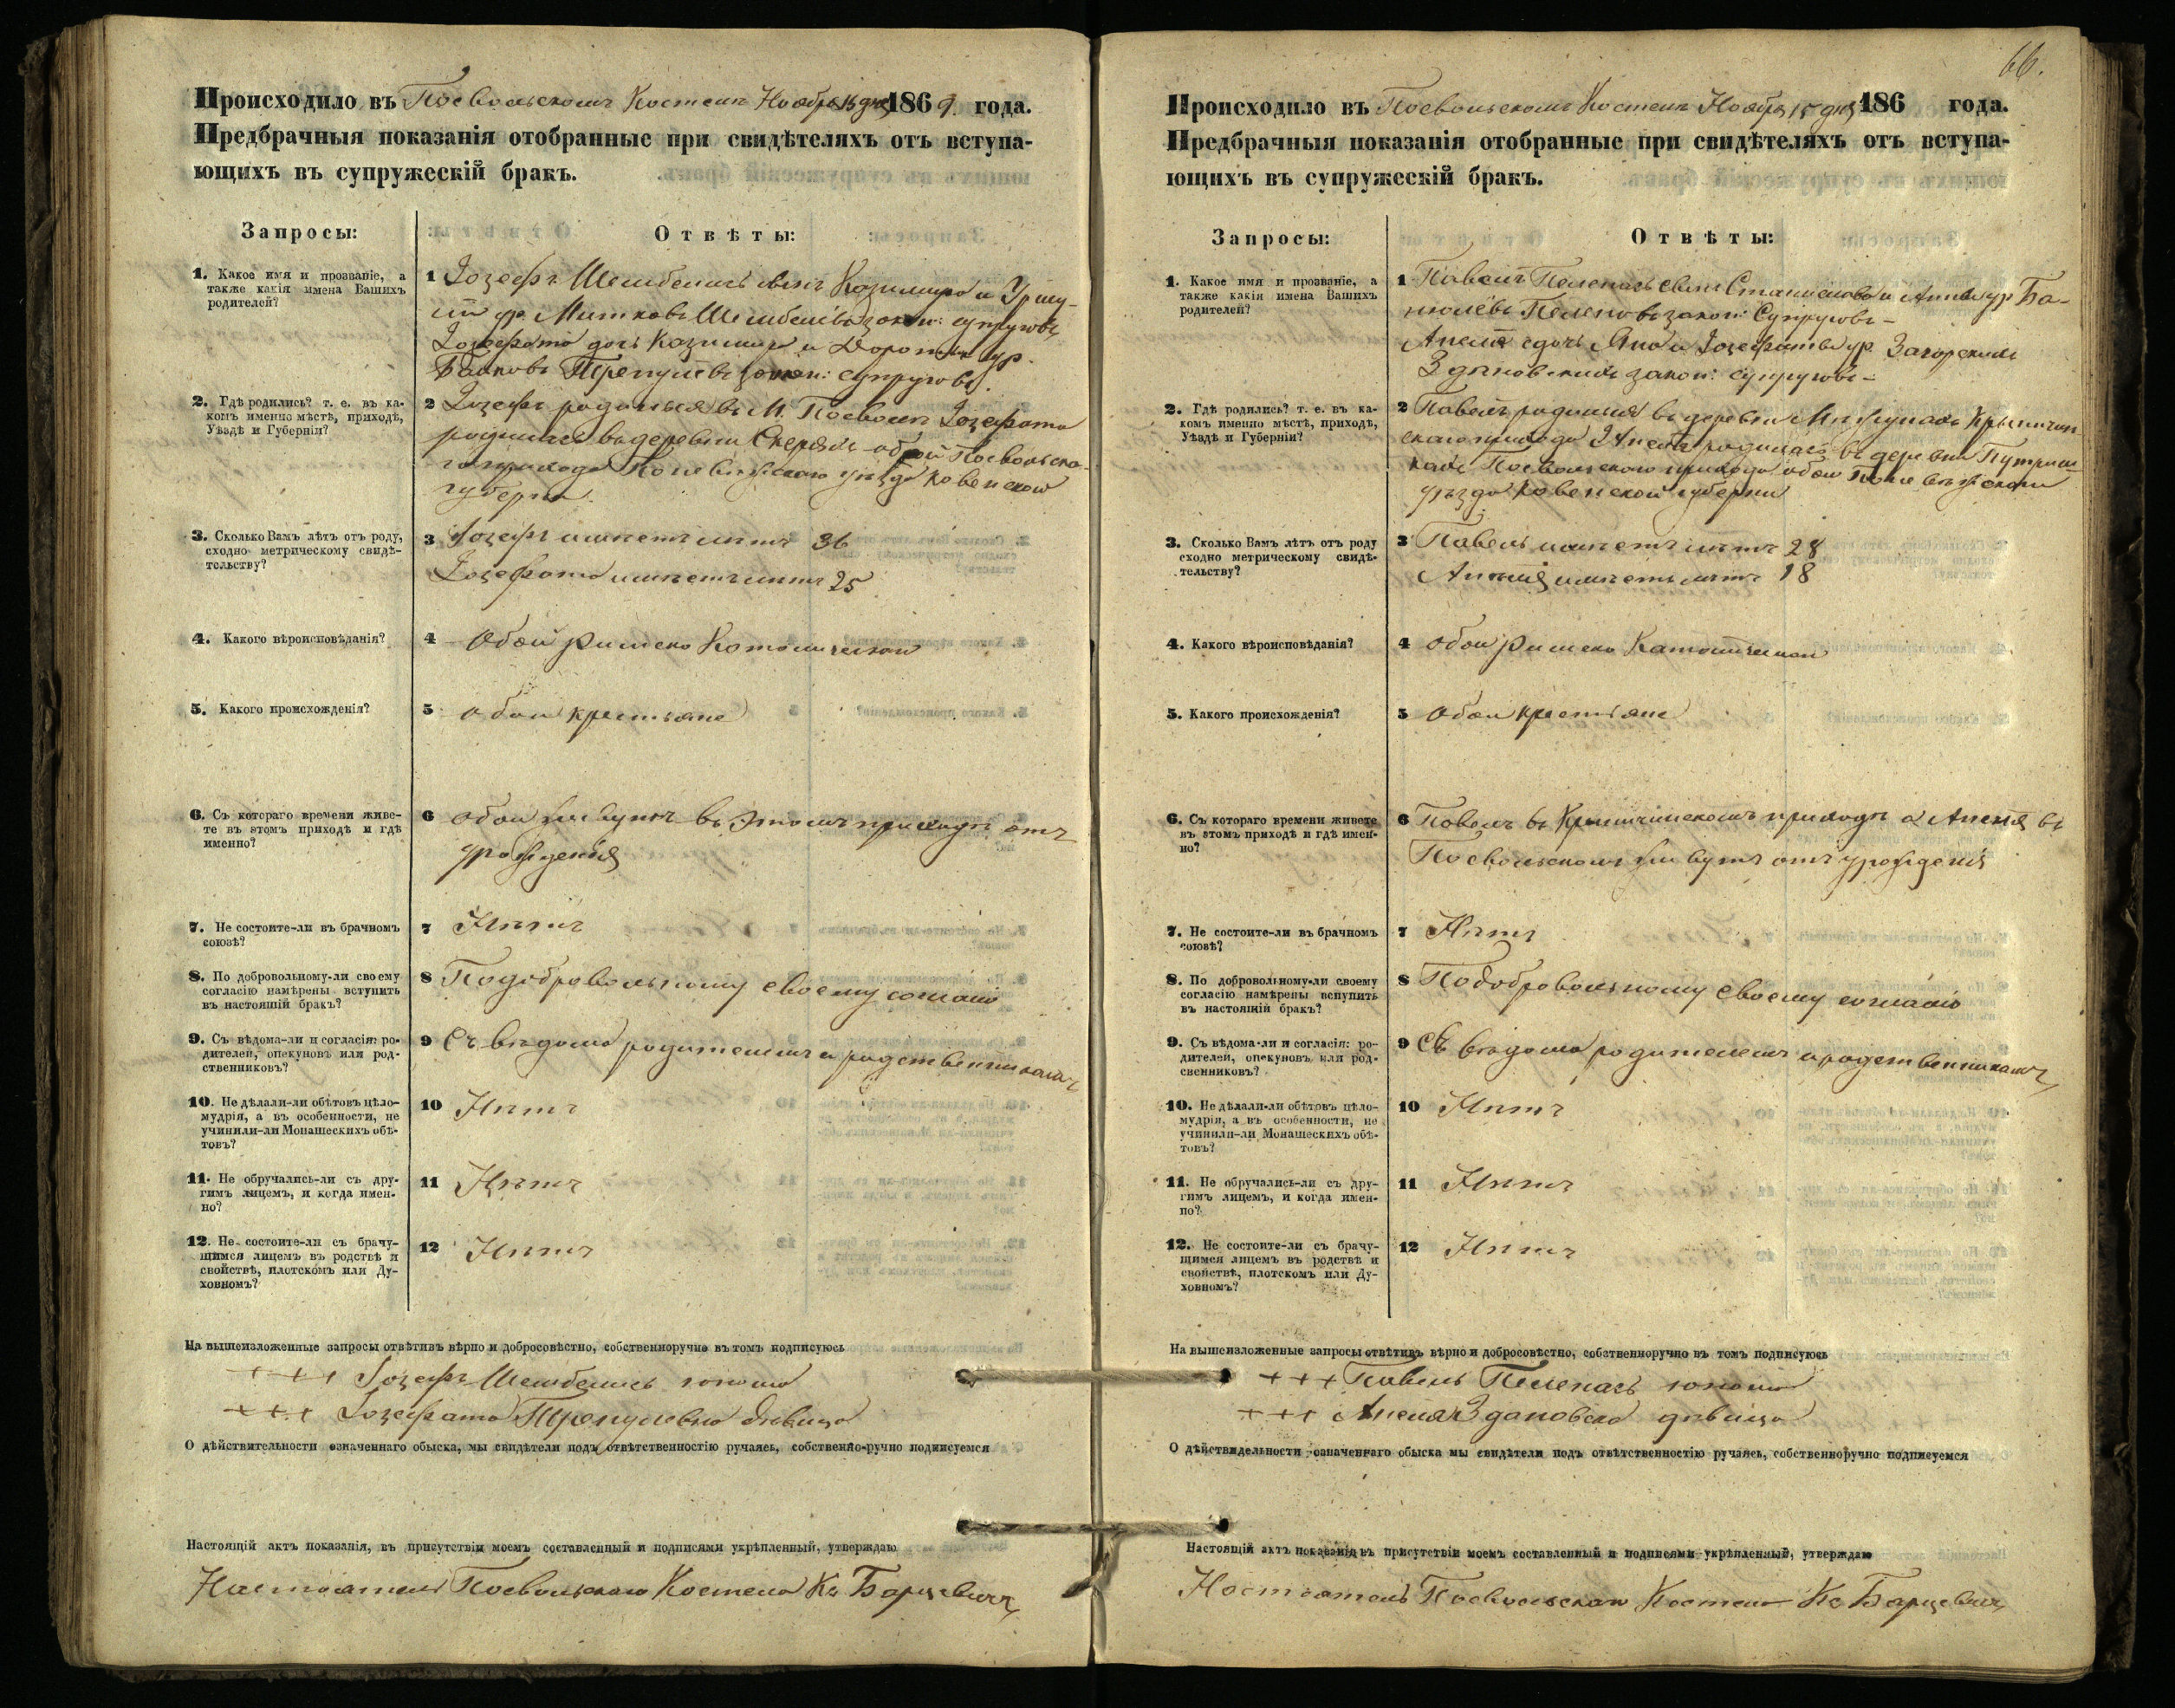 Происходило въ Посвольскомъ Костелѣ Ноября 15 дня 1869 года.
Предбрачныя показанія отобранные при свидѣтеляхъ отъ вступа-
ющихъ въ супружескій бракъ.
Запросы:
Отвѣты:
1. Какое имя и прозваніе, а
также какія имена Вашихъ
родителей?
1 Іозефъ Шембелисъ сынъ Казимира и Уршу-
ли ур. Митковъ Шембелёвъ закон: супруговъ,
Іозефата дочь Казимира и Дороты ур.
Балковъ Трепулёвъ закон: супруговъ.
2. Гдѣ родились? т. е. въ ка-
комъ именно мѣстѣ, приходѣ,
Уѣздѣ и Губерніи?
2 Іозефъ родился въ М. Посволѣ Іозефата
родилась въ деревни обои Посвольска-
го прихода Поневѣжскаго уѣзда Ковенской
губерни.
3. Сколько Вамъ лѣтъ отъ роду,
сходно метрическому свидѣ-
тельству?
3 Іозефъ имѣетъ лѣтъ 36
Іозефата имѣетъ лѣтъ 25
4. Какого вѣроисповѣданія?
4 Обои Римско Католической
5. Какого происхожденія?
5 обои крестьяне
6. Съ котораго времени живе-
те въ этомъ приходѣ и гдѣ
именно?
6 обои живутъ въ Этомъ приходѣ отъ
урожденія
7. Не состоите-ли въ брачномъ
союзѣ?
7 Нѣтъ
8. По добровольному-ли своему
согласію намѣрены вступить
въ настоящій бракъ?
8 По добровольному своему согласію
9. Съ вѣдома-ли и согласія: ро-
дителей, опекуновъ или род-
ственниковъ?
9 Съ вѣдома родителемъ и родственникамъ
10. Не дѣлали-ли обѣтовъ цѣло-
мудрія, а въ особенности, не
учинили-ли Монашескихъ обѣ-
товъ?
10 Нѣтъ
11. Не обручались-ли съ дру-
гимъ лицемъ, и когда имен-
но?
11 Нѣтъ
12. Не состоите-ли съ брачу-
щимся лицемъ въ родствѣ и
свойствѣ, плотскомъ или Ду-
ховномъ?
12 Нѣтъ
На вышеизложенные запросы отвѣтивъ вѣрно и добросовѣстно, собственноручно въ томъ подписуюсь
+++ Іозефъ Шембелисъ юноша
+++ Іозефата Трепулевна дѣвица
О дѣйствительности означеннаго обыска, мы свидѣтели подъ отвѣтственностію ручаясь, собственно-ручно подписуемся
Настоящій актъ показанія, въ присутствіи моемъ составленный и подписями укрѣпленный, утверждаю
Настоятель Посвольскаго Костела Кс Барцевичъ
66.
Происходило въ Посвольскомъ Костелѣ Ноября 15 дня 186 года.
Предбрачныя показанія отобранные при свидѣтеляхъ отъ вступа-
ющихъ въ супружескій бракъ.
Запросы:
Отвѣты:
1. Какое имя и прозваніе, а
также какія имена Вашихъ
родителей?
1 Павелъ Пеленасъ сынъ Станислава и Анны ур Ба-
нюлёвъ Пеленовъ закон: Супруговъ
Анеля дочь Яна и Іозефаты ур. Загорскихъ
Здановскихъ закон: супруговъ
2. Гдѣ родились? т. е. въ ка-
комъ именно мѣстѣ, приходѣ,
Уѣздѣ и Губерніи?
2 Павелъ родился въ деревни Крыничин-
скаго прихода Анеля родилась въ деревни
Посвольскаго прихода обои Поневѣжскаго
уѣзда Ковенской губерни
3. Сколько Вамъ лѣтъ отъ роду
сходно метрическому свидѣ-
тельству?
3 Павелъ имѣетъ лѣтъ 28
Анеля имѣетъ лѣтъ 18
4. Какого вѣроисповѣданія?
4 обои Римско Католической
5. Какого происхожденія?
5 Обои крестьяне
6. Съ котораго времени живете
въ этомъ приходѣ и гдѣ имен-
но?
6 Павелъ въ Крыничинскомъ приходѣ а Анеля въ
Посвольскомъ живутъ отъ урожденія
7. Не состоите-ли въ брачномъ
союзѣ?
7 Нѣтъ
8. По добровольному-ли своему
согласію намѣрены вспупить
въ настоящій бракъ?
8 По добровольному своему согласію
9. Съ вѣдома-ли и согласія: ро-
дителей, опекуновъ или род-
свенниковъ?
9 Съ вѣдома родителемъ и родственникамъ
10. Не дѣлали-ли обѣтовъ цѣло-
мудрія, а въ особенности, не
учинили-ли Монашескихъ обѣ-
товъ?
10 Нѣтъ
11. Не обручались-ли съ дру-
гимъ лицемъ, и когда имен-
но?
11 Нѣтъ
12. Не состоите-ли съ брачу-
щимся лицемъ въ родствѣ и
свойствѣ, плотскомъ или Ду-
ховномъ?
12 Нѣтъ
На вышеизложенные запросы отвѣтивъ вѣрно и добросовѣстно, собственноручно въ томъ подписуюсь
+++ Павелъ Пеленасъ юноша
+++ Анеля Здановска дѣвица
О дѣйствидельности означеннаго обыска мы свидѣтели подъ отвѣтственностію ручаясь, собственноручно подписуемся
Настоящій актъ показанія въ присутствіи моемъ составленный и подписями укрѣпленный, утверждаю
Настоятель Посвольскаго Костела Кс Барцевичъ